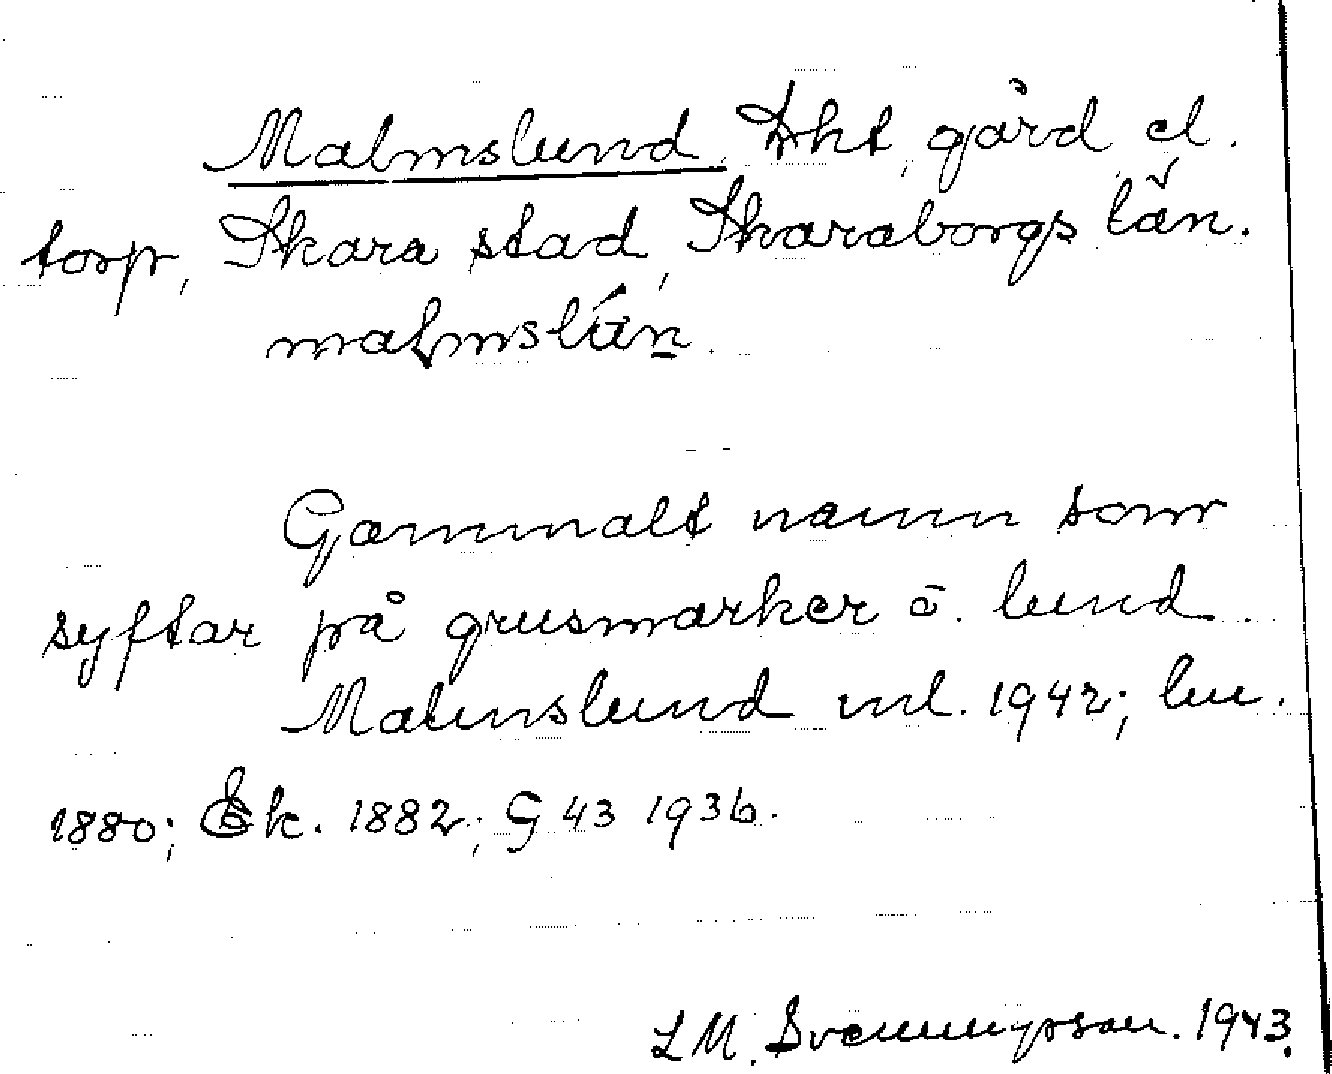 Malmslund. Lht, gård el.
torp, Skara stad, Skaraborgs län.
malmslán
Gammalt namn som
syftar på grusmarker o. lund
Malmslund ml. 1942; lu.
1880; Ek. 1882; G 43 1936.
L M. Svenungsson. 1943.